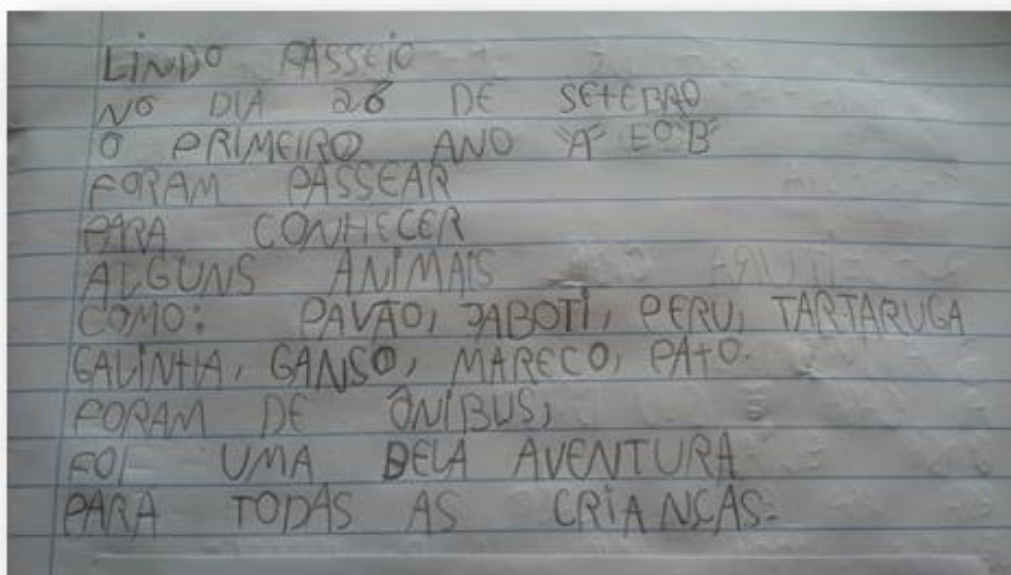 LINDO PASSEIO
NO DIA 26 DE SETEBRO
O PRIMEIRO ANO "A" E O "B"
FORAM PASSEAR
PARA CONHECER
ALGUNS ANIMAIS
COMO: PAVÃO, JABOTI, PERU, TARTARUGA
GALINHA, GANSO, MARECO, PATO.
FORAM DE ÔNIBUS,
FOI UMA BELA AVENTURA
PARA TODAS AS CRIANÇAS.